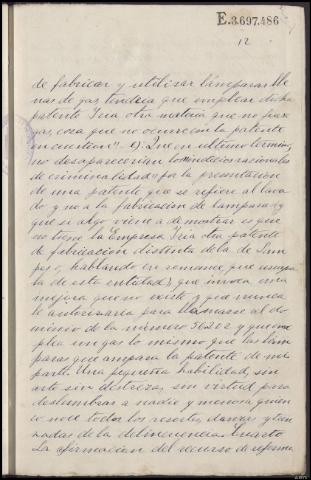 E.3.697.486
12
de fabricar y utilizar lámparas lle
nas de gas, tendría que emplear dicha
patente Iria otra materia que no fuese
gas, cosa que no ocurre en la patente
en cuestion". 9). Que en ultimo termino,
no desaparecerian los "indicios racionales
de criminalidad" por la presentacion
de una patente que se refiere al lava
do y no a la fabricación de lamparas y
que si algo viene a demostrar es que
no tiene la Empresa Iria otra patente
de fabricación distinta de la de
hablando en romance, que usurpa
la de esta entidad, que invoca una
mejora que no existe y que nunca
le autorizaria para llamarse al do
minio de la número 56202 y que em
plea un gas lo mismo que las lám
paras que ampara la patente de mi
parte. Una pequeña habilidad, sin
arte sin destreza, sin virtud para
deslumbrar a nadie y menos a quien
conoce todos los resortes, danzas y
de la delincuencia.
La afirmacion del recurso de reforma